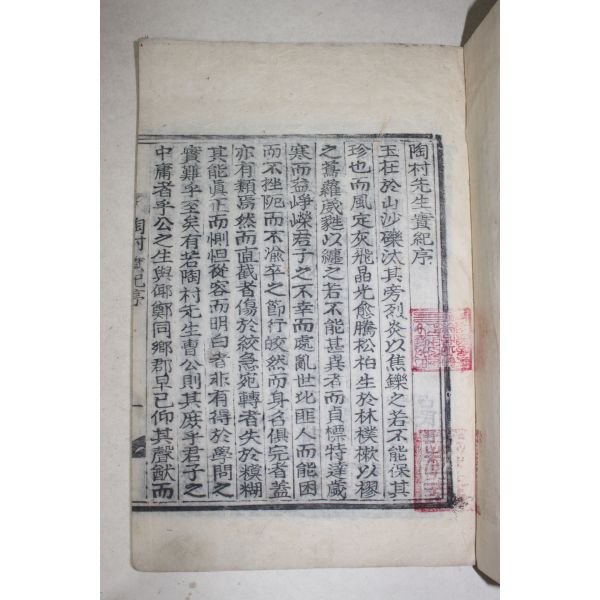 陶村先生實紀序
玉在於山沙礫汰其旁烈炎以焦鑠之若不能保其
珍也而風定灰飛晶光愈騰松柏生於林樸樕以樛
之蔦蘿以纏之若不能甚異者而貞標特達歲
寒而益崢嶸君子之不幸而處亂世比匪人而能困
而不挫阨而不渝卒之節行皎然而身名俱完者蓋
亦有類焉然而直截者傷於絞急宛轉者失於糢糊
其能眞正而惻怛從容而明白者非有得於學問之
實難乎至矣有若陶村先生曺公則其庶乎君子之
中庸者乎公之生與鄭同鄕郡早已仰其聲猷而
陶村實紀序
一